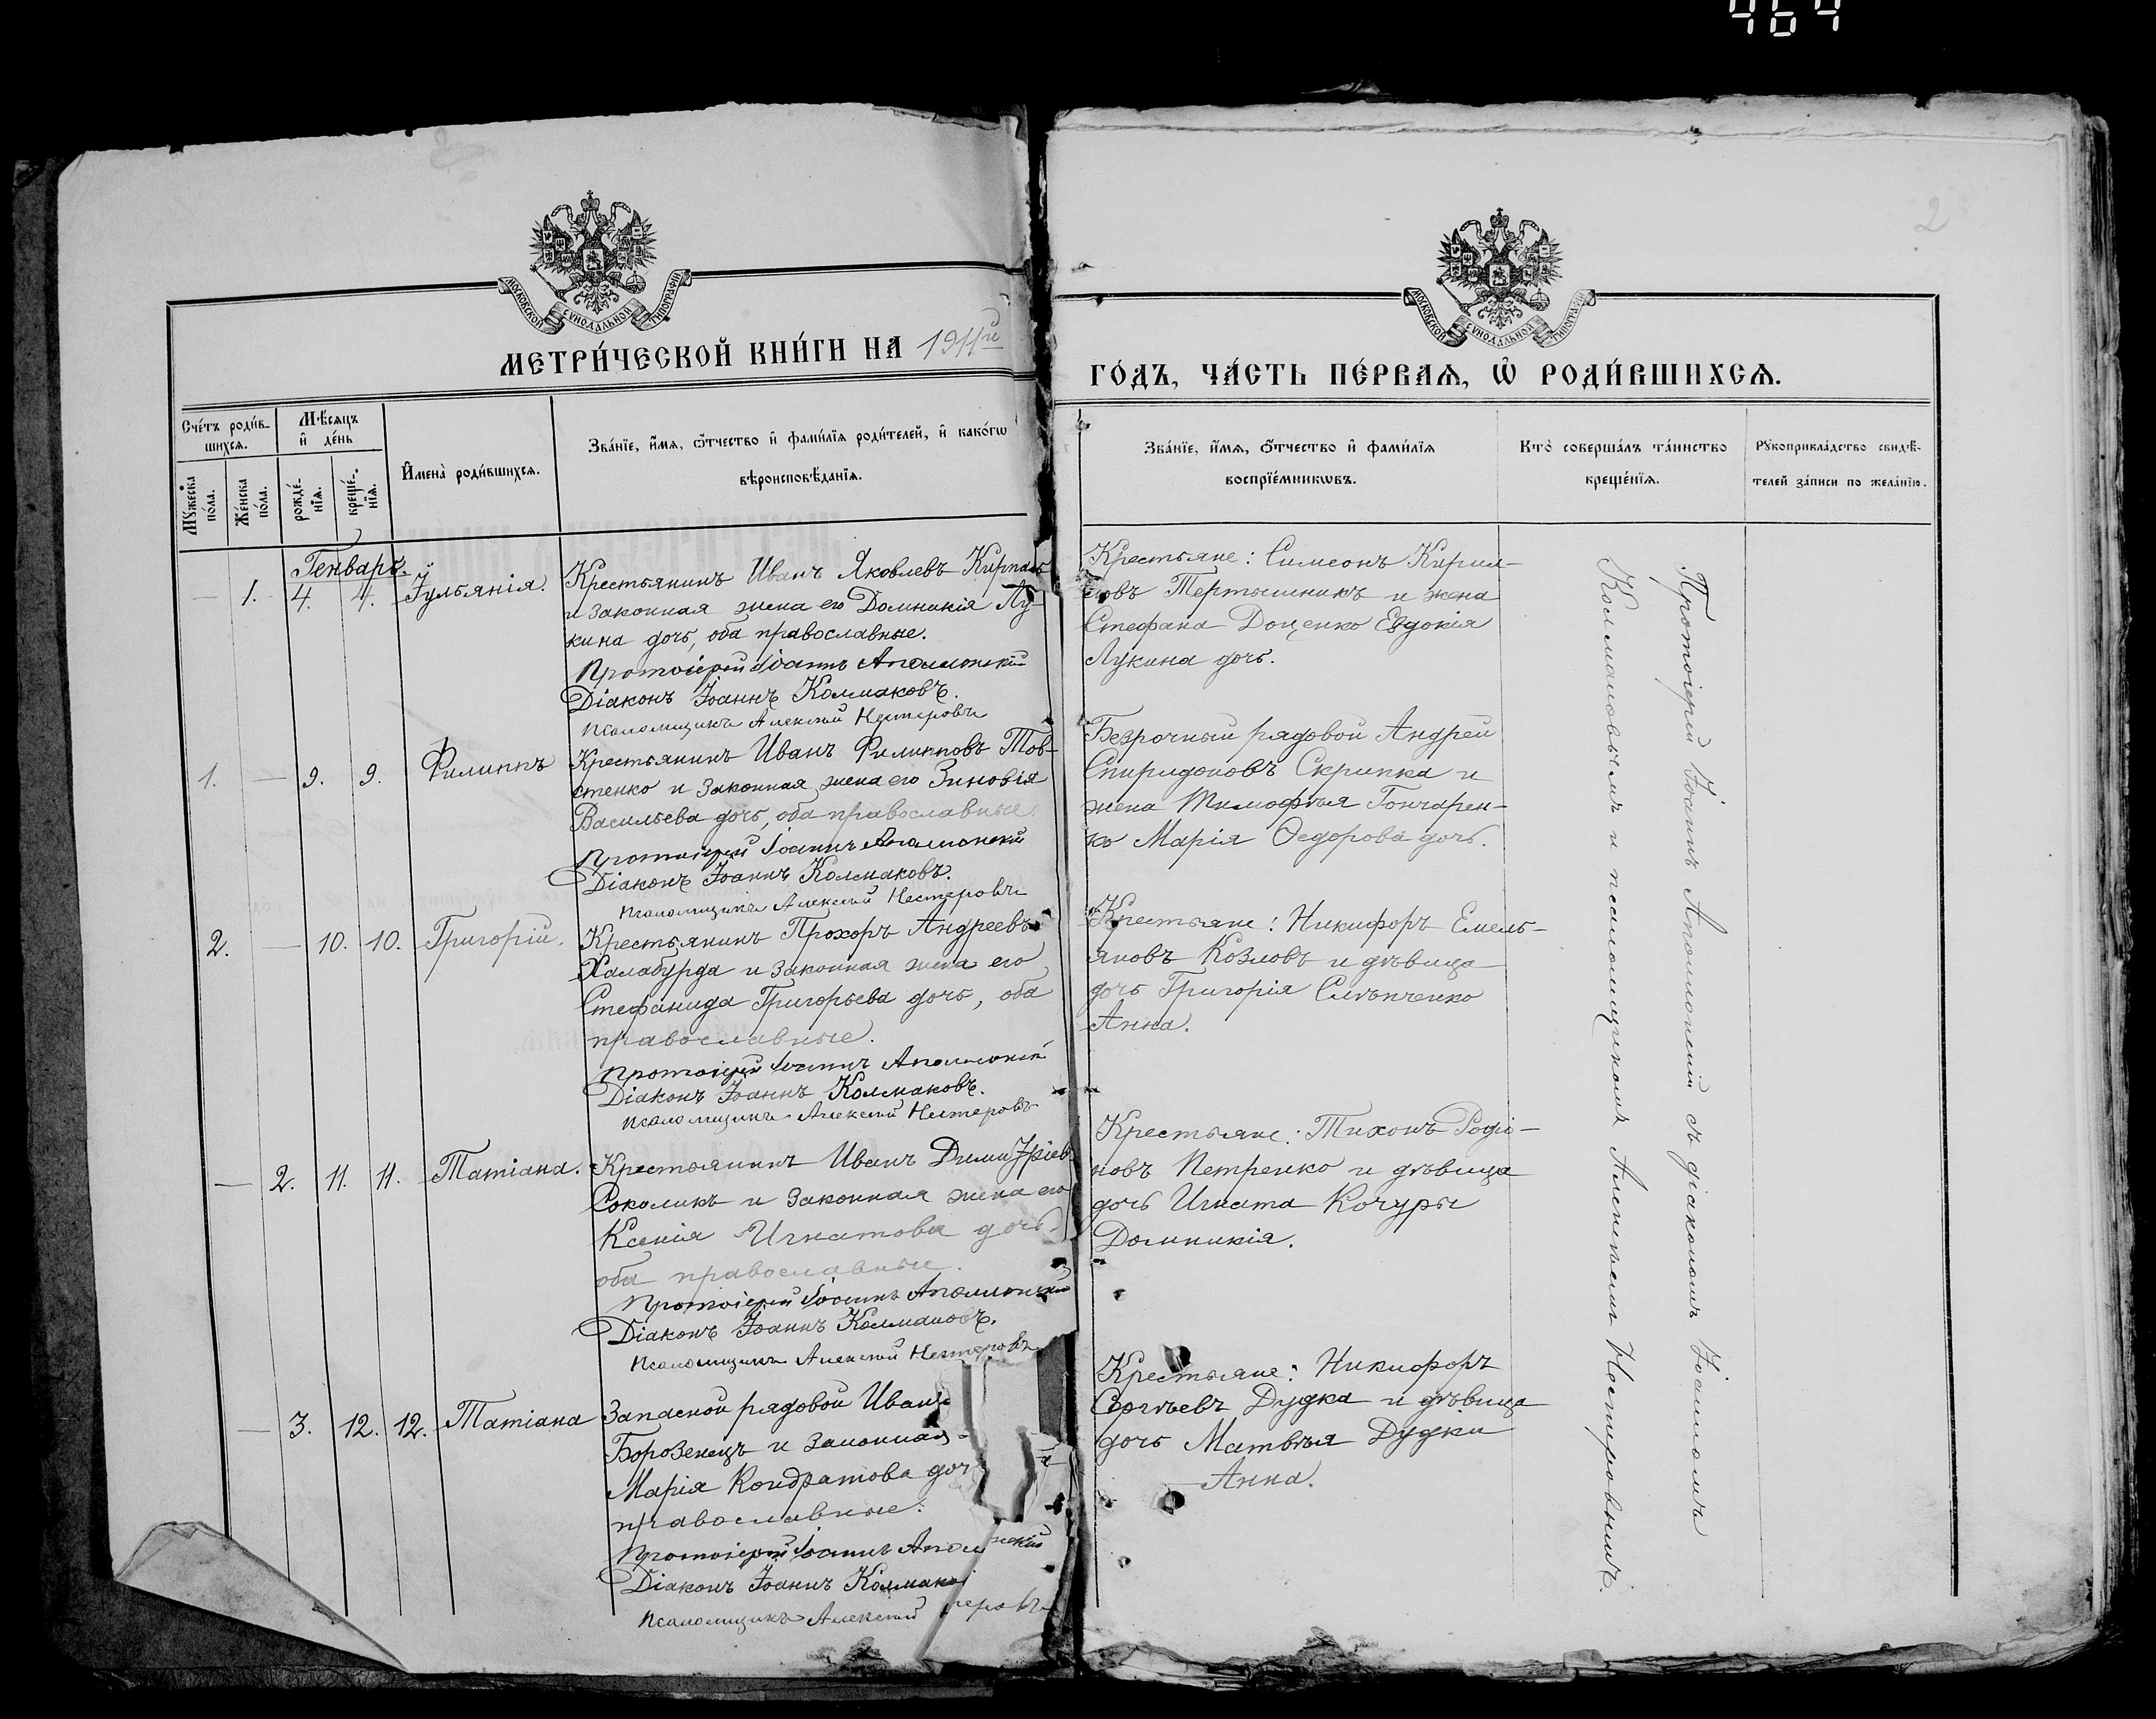 464
2
МОСКОВСКОЙ СУНОДАЛЬНОЙ ТИПОГРАФІИ
МОСКОВСКОЙ СУНОДАЛЬНОЙ ТИПОГРАФІИ
МЕТРИ́ЧЕСКОЙ КНИ́ГИ НА 1911й
ГО́ДЪ, ЧА́СТЬ ПЕ́РВАѦ, Ѽ РОДИ́ВШИХСѦ.
Сче́тъ роди́в-
шихсѧ.
Мѣ́сѧцъ
и҆ де́нь
Мꙋ́жеска
по́ла.
Же́нска
по́ла.
рожде́-
нїѧ.
креще́-
нїѧ.
И҆мена̀ роди́вшихсѧ.
Зва́нїе, и҆́мѧ, ѻ҆́тчество и҆ фами́лїѧ роди́телей, и҆ како́гѡ
вѣроисповѣ́данїѧ.
Зва́нїе, и҆́мѧ, ѻ҆́тчество и҆ фами́лїѧ
воспрїе́мникѡвъ.
Кто̀ соверша́лъ та́инство
креще́нїѧ.
Рꙋкоприкла́дство свидѣ́-
телей за́писи по жела́нїю.
Генварь.
— 1. 4. 4. Іульянія.
Крестьянинъ Иванъ Яковлевъ
и законная жена его Домникія Лу-
кина дочь, оба православные.
Протоіерей Іоаннъ Аполлонскій
Діаконъ Іоаннъ Колмаковъ.
Псаломщикъ Алексій Нестеровъ
Крестьяне: Симеонъ Кирил-
ловъ Тертышникъ и жена
Стефана Доценко Евдокія
Лукина дочь.
1. — 9. 9. Филиппъ
Крестьянинъ Иванъ Филипповъ Тов-
стенко и законная жена его Зиновія
Васильева дочь, оба православные.
Протоіерей Іоаннъ Аполлонскій
Діаконъ Іоаннъ Колмаковъ.
Псаломщикъ Алексій Нестеровъ
Безрочный рядовой Андрей
Спиридоновъ Скрипка и
жена Тимофея Гончарен-
ко Марія Ѳедорова дочь.
2. — 10. 10. Григорій.
Крестьянинъ Прохоръ Андреевъ
Халабурда и законная жена его
Стефанида Григорьева дочь, оба
православные.
Протоіерей Іоаннъ Аполлонскій
Діаконъ Іоаннъ Колмаковъ.
Псаломщикъ Алексій Нестеровъ
Крестьяне: Никифоръ Емель-
яновъ Козловъ и дѣвица
дочь Григорія Слѣпченко
Анна.
— 2. 11. 11. Татіана.
Крестьянинъ Иванъ Димитріевъ
Соколикъ и законная жена его
Ксенія Игнатова дочь
оба православные.
Протоіерей Іоаннъ Аполлонскій
Діаконъ Іоаннъ Колмаковъ.
Псаломщикъ Алексій Нестеровъ
Крестьяне: Тихонъ Родіо-
новъ Петренко и дѣвица
дочь Игната Кочуры
Домникія.
— 3. 12. 12. Татіана
Запасной рядовой Иванъ
Борозенецъ и законная
Марія Кондратова доч
православные.
Протоіерей Іоаннъ Апол нскій
Діаконъ Іоаннъ Колмако
Псаломщикъ Алексій теровъ
Крестьяне: Никифоръ
Сергѣевъ Дудка и дѣвица
дочь Матвѣя Дудки
Анна.
Протоіерей Іоаннъ Аполлонскій съ діакономъ Іоанномъ
Колмаковымъ и псаломщикомъ Алексѣемъ Нестеровымъ.